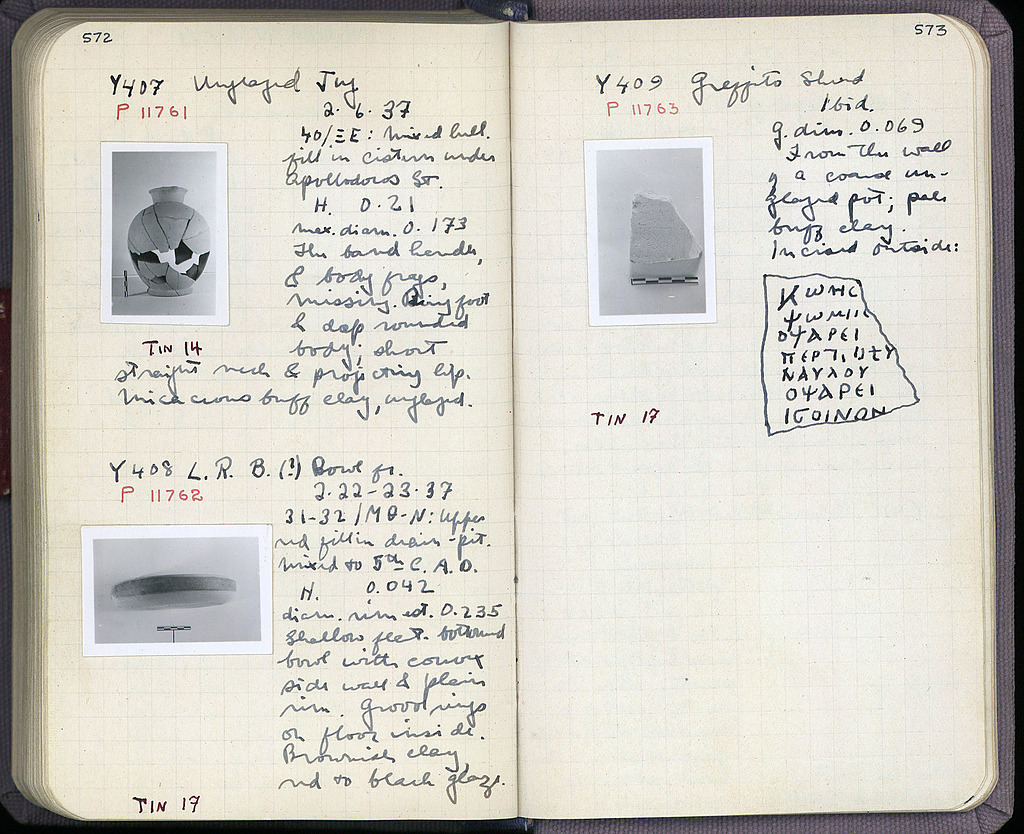 572
Y407 Unglazed Jug
P 11761
2.6.37
40/ΞE: Mixed hell.
fill in cistern under
Apollodoros St.
H. 0.21
max. diam. 0.173
The band handle,
& body frags,
missing. Ring foot
& deep rounded
body; short
TIN 14
straight neck & projecting lip.
Micaceous buff clay, unglazed.
Y408 L. R. B. (?) Bowl fr.
P 11762
2.22-23.37
31-32/MΘ-N: Upper
red fill in drain-pit.
Mixed to 5th C. A.D.
H. 0.042
diam. rim est. 0.235
Shallow flat-bottomed
bowl with convex
side wall & plain
rim. Groov rings
on floor inside.
Brownish clay,
red to black glaze.
TIN 17
573
Y409 Graffito Sherd
P 11763
Ibid.
g. dim. 0.069
From the wall
of a coarse un-
glazed pot; pale
buff clay.
Incised outside:
ΚωΗC
ΨωΜΙ
ΟΨΑΡΕΙ
ΠΕΡΤ
ΝΑΥΛΟΥ
ΟΨΑΡΕΙ
ΙCΟΙΝΟΝ
TIN 17